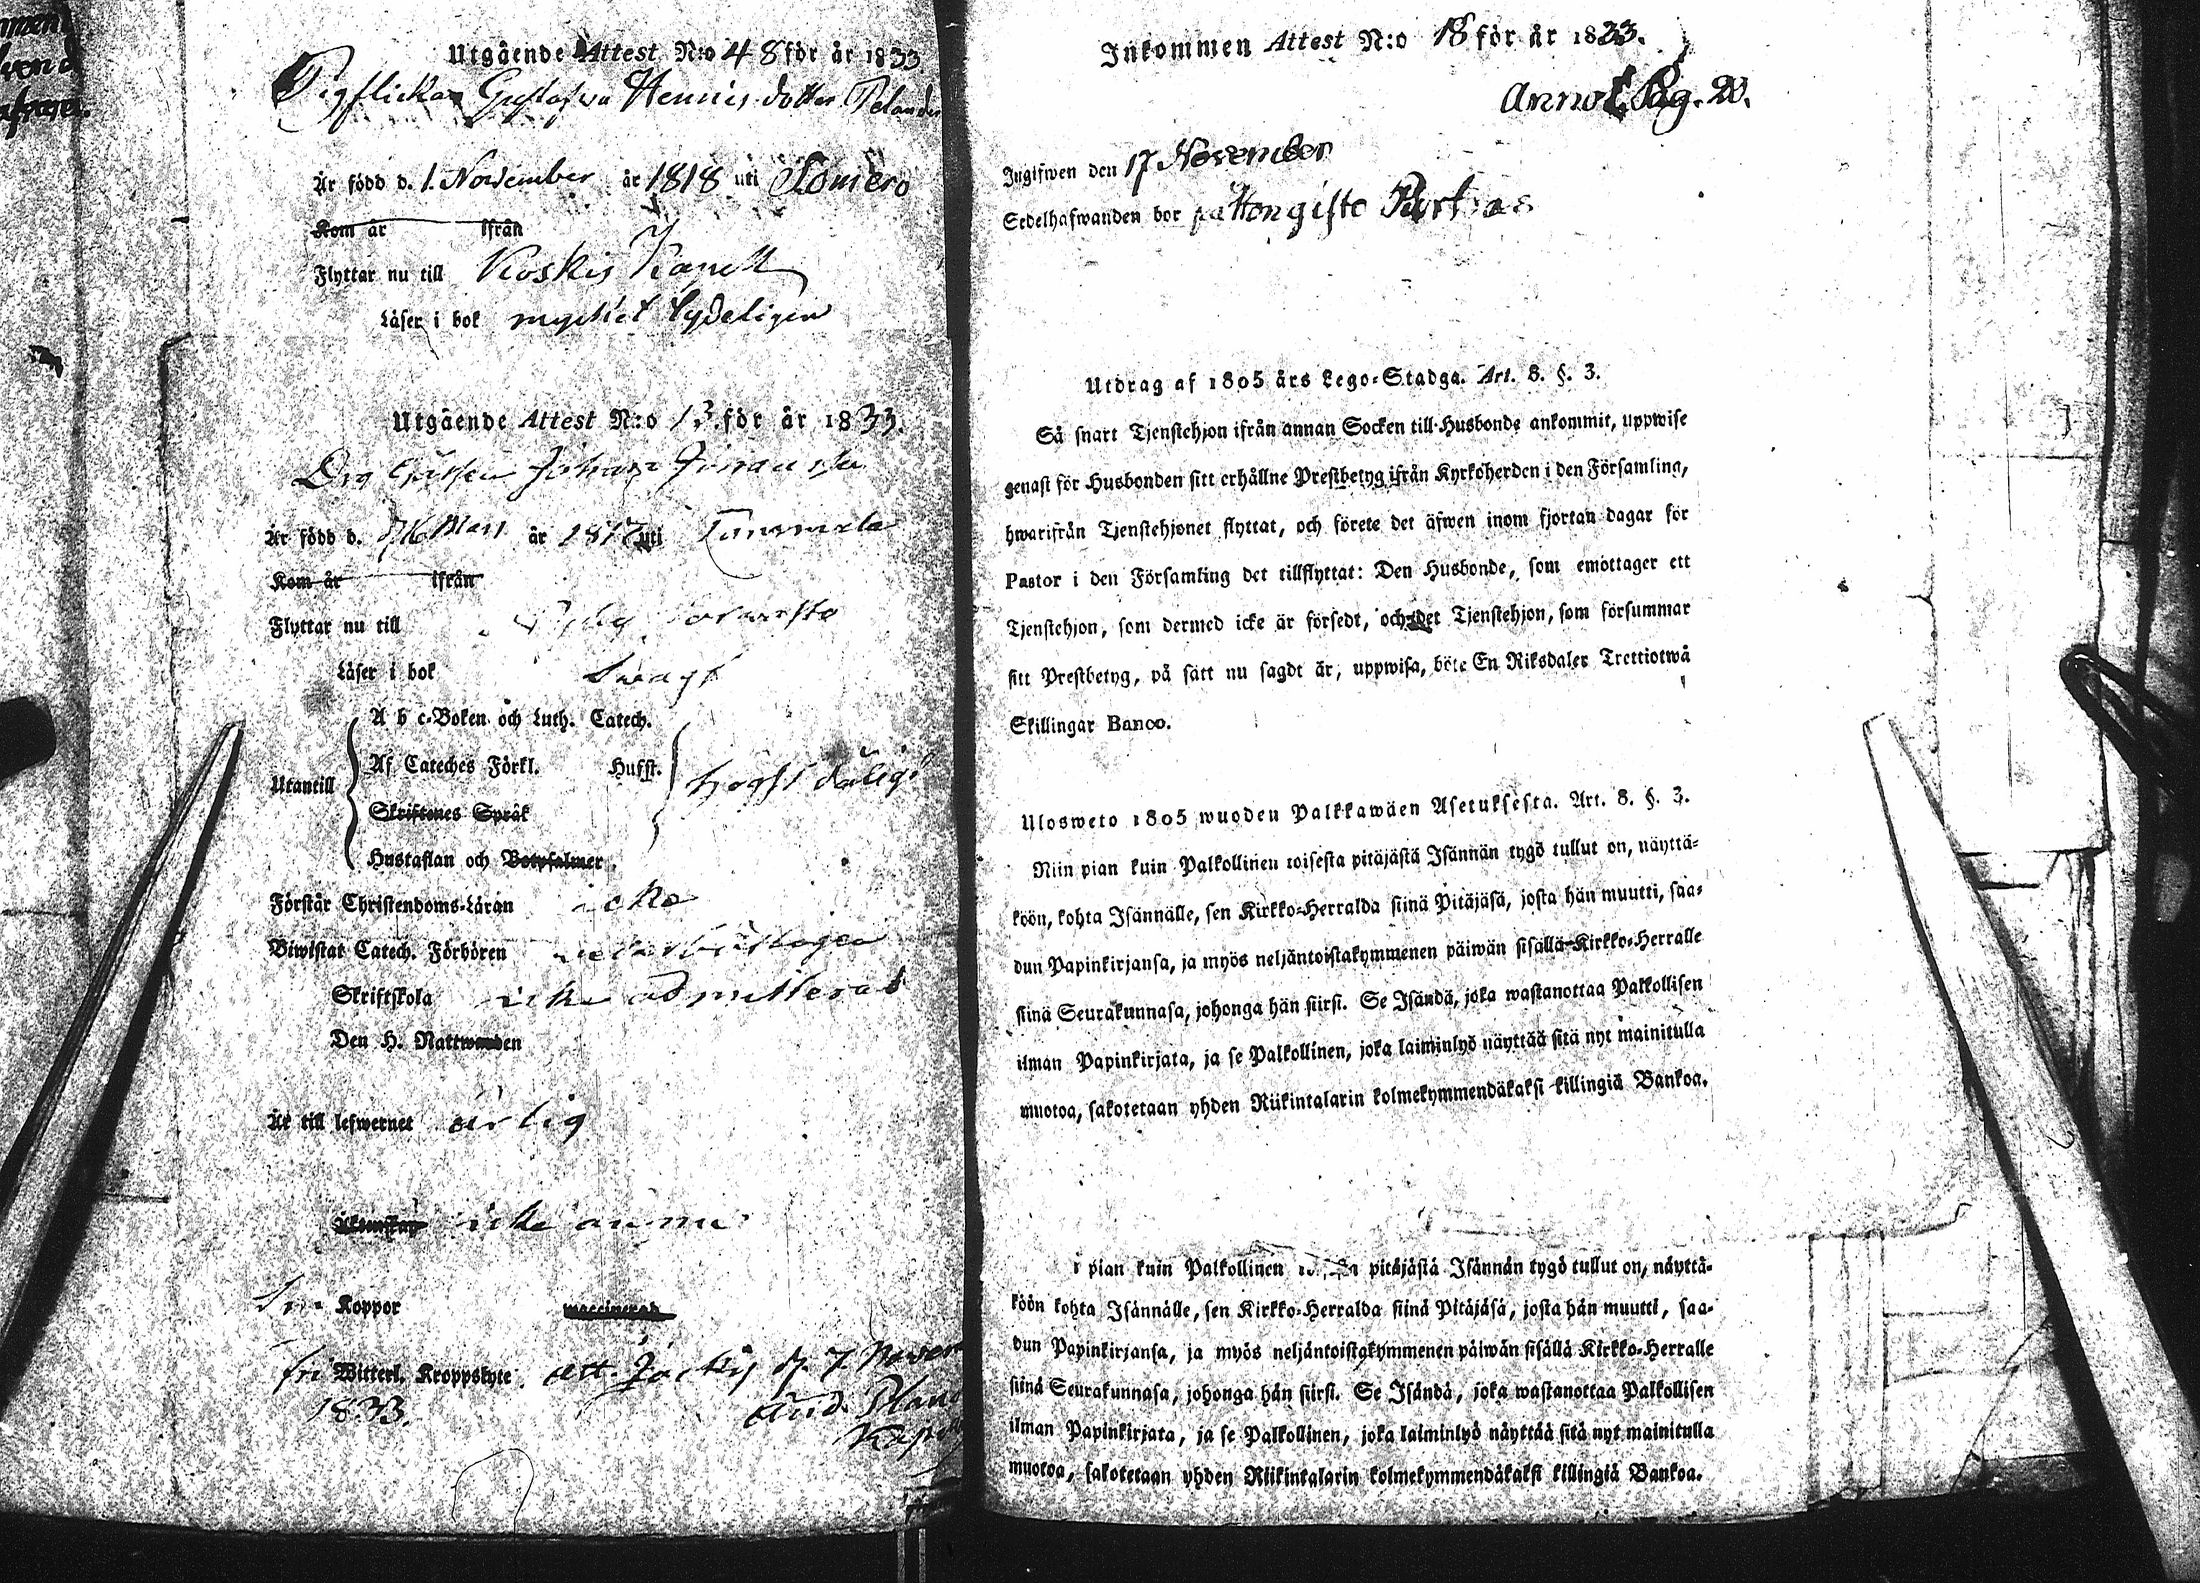 Utgående Attest N:o 48 för år 1833.
Pigflickan Gustafva Hennis dotter
Är född d. 1. November år 1818 uti Somero
Kom år ifrån
Flyttar nu till Koskis Kapell
Läser i bok mycket tydeligen
Utgående Attest N:o 13. för år 1833.
Johan
Är född d. Mars år 1817 uti
Kom år ifrån
Flyttar nu till
Läser i bok svagt
A b c-Boken och Luth. Catech.
Af Cateches Förkl. Hufst.
Utantill högst dåligt
Skriftenes Språk
Hustaflan och Botpsalmer.
Förstår Christendoms-Läran icke
Biwistat Catech. Förhören
Skriftskola icke admitterad
Den H. Nattwarden
Är till lefwernet ärlig
Äktenskap icke ännu
Koppor waccinerad
fri Witterl. Kroppslyte. att. d. 7. Novem
1833.
Inkommen Attest N:o 18 för år 1833.
Annot. Pag. 20.
Ingifwen den 17 November
Sedelhafwanden bor på Hongisto
Utdrag af 1805 års Lego-Stadga. Art. 8. §. 3.
Så snart Tjenstehjon ifrån annan Socken till Husbonde ankommit, uppwise
genast för Husbonden sitt erhållne Prestbetyg ifrån Kyrkoherden i den Församling,
hwarifrån Tjenstehjonet flyttat, och förete det äfwen inom fjortan dagar för
Pastor i den Församling det tillflyttat: Den Husbonde, som emottager ett
Tjenstehjon, som dermed icke är försedt, och det Tjenstehjon, som försummar
sitt Prestbetyg, på sätt nu sagdt är, uppwisa, böte En Riksdaler Trettiotwå
Skillingar Banco.
Ulosweto 1805 wuoden Palkkawäen Asetuksesta. Art. 8. §. 3.
Niin pian kuin Palkollinen toisesta pitäjästä Isännän tygö tullut on, näyttä-
köön, kohta Isännälle, sen Kirkko-Herralda siinä Pitäjäsä, josta hän muutti, saa-
dun Papinkirjansa, ja myös neljäntoistakymmenen päiwän sisällä Kirkko-Herralle
siinä Seurakunnasa, johonga hän siirsi. Se Isändä, joka wastanottaa Palkollisen
ilman Papinkirjata, ja se Palkollinen, joka laiminlyö näyttää sitä nyt mainitulla
muotoa, sakotetaan yhden Riikintalarin kolmekymmendäkaksi killingiä Bankoa.
pian kuin Palkollinen pitäjästä Isännän tygö tullut on, näyttä-
köön kohta Isännälle, sen Kirkko-Herralda siinä Pitäjäsä, josta hän muutti, saa-
dun Papinkirjansa, ja myös neljäntoistakymmenen päiwän sisällä Kirkko-Herralle
siinä Seurakunnasa, johonga hän siirsi. Se Isändä, joka wastanottaa Palkollisen
ilman Papinkirjata, ja se Palkollinen, joka laiminlyö näyttää sitä nyt mainitulla
muotoa, sakotetaan yhden Riikintalarin kolmekymmendäkaksi killingiä Bankoa.